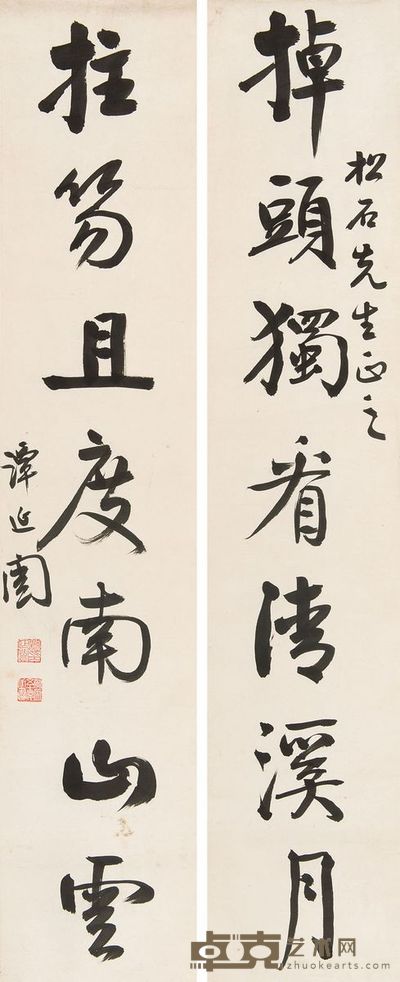 掉頭獨看清溪月
松石先生正之
拄笏且度南山雲
譚延闓
卓克艺术网
zhuokearts.com